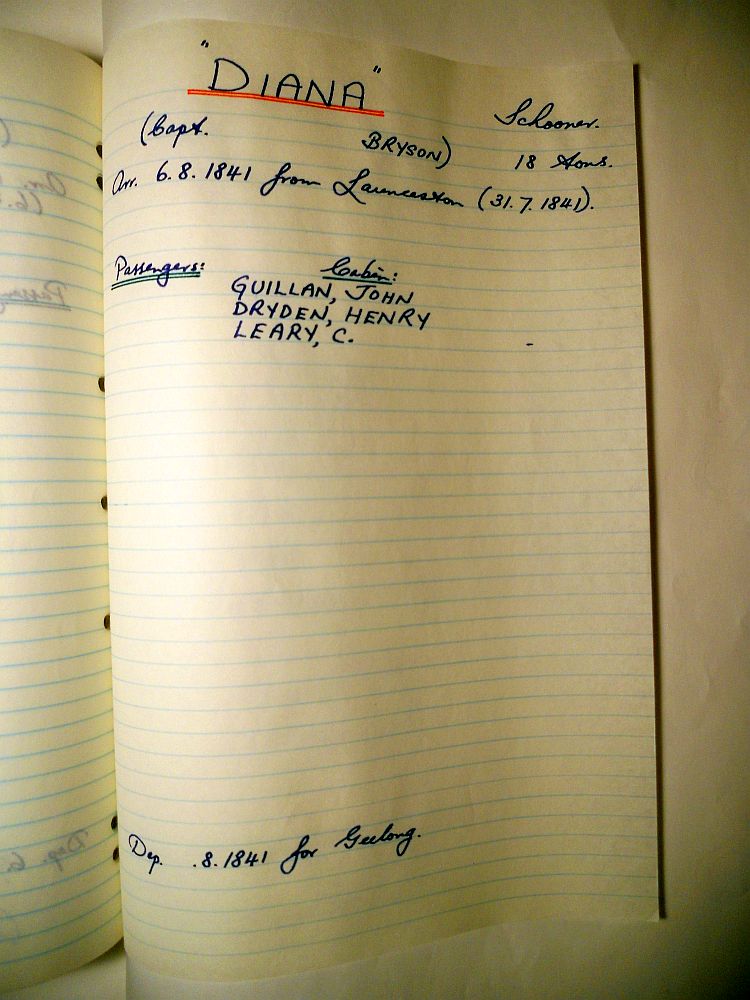 "DIANA"
Schooner.
(Capt. BRYSON) 18 tons.
Arr. 6.8.1841 from Launceston (31.7.1841).
Passengers: Cabin:
GUILLAN, JOHN
DRYDEN, HENRY
LEARY, C.
Dep. .8.1841 for Geelong.